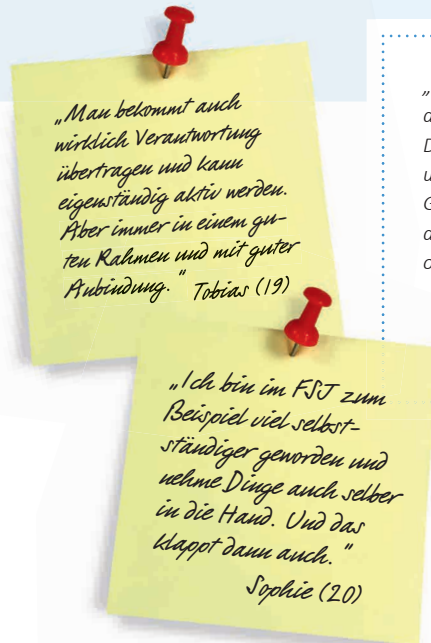 „Man bekommt auch
wirklich Verantwortung
übertragen und kann
eigenständig aktiv werden.
Aber immer in einem gu-
ten Rahmen und mit guter
Anbindung.“ Tobias (19)
„Ich bin im FSJ zum
Beispiel viel selbst-
ständiger geworden und
nehme Dinge auch selber
in die Hand. Und das
klappt dann auch.“
Sophie (20)